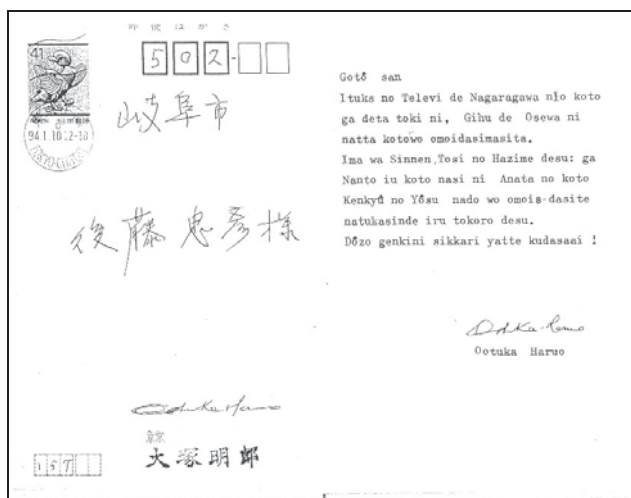 郵便はがき
41
502-
岐阜市
後藤忠彦様
東京
大塚明郎
157
Gotô san
Ituka no Televi de Nagaragawa nio koto
ga deta toki ni, Gihu de Osewa ni
natta kotowo omoidasimasita.
Ima wa Sinnen,Tosi no Hazime desu: ga
Nanto iu koto nasi ni Anata no koto
Kenkyû no Yôsu nado wo omois-dasite
natukasinde iru tokoro desu.
Dôzo genkini sikkari yatte kudasaai !
Ootuka Haruo